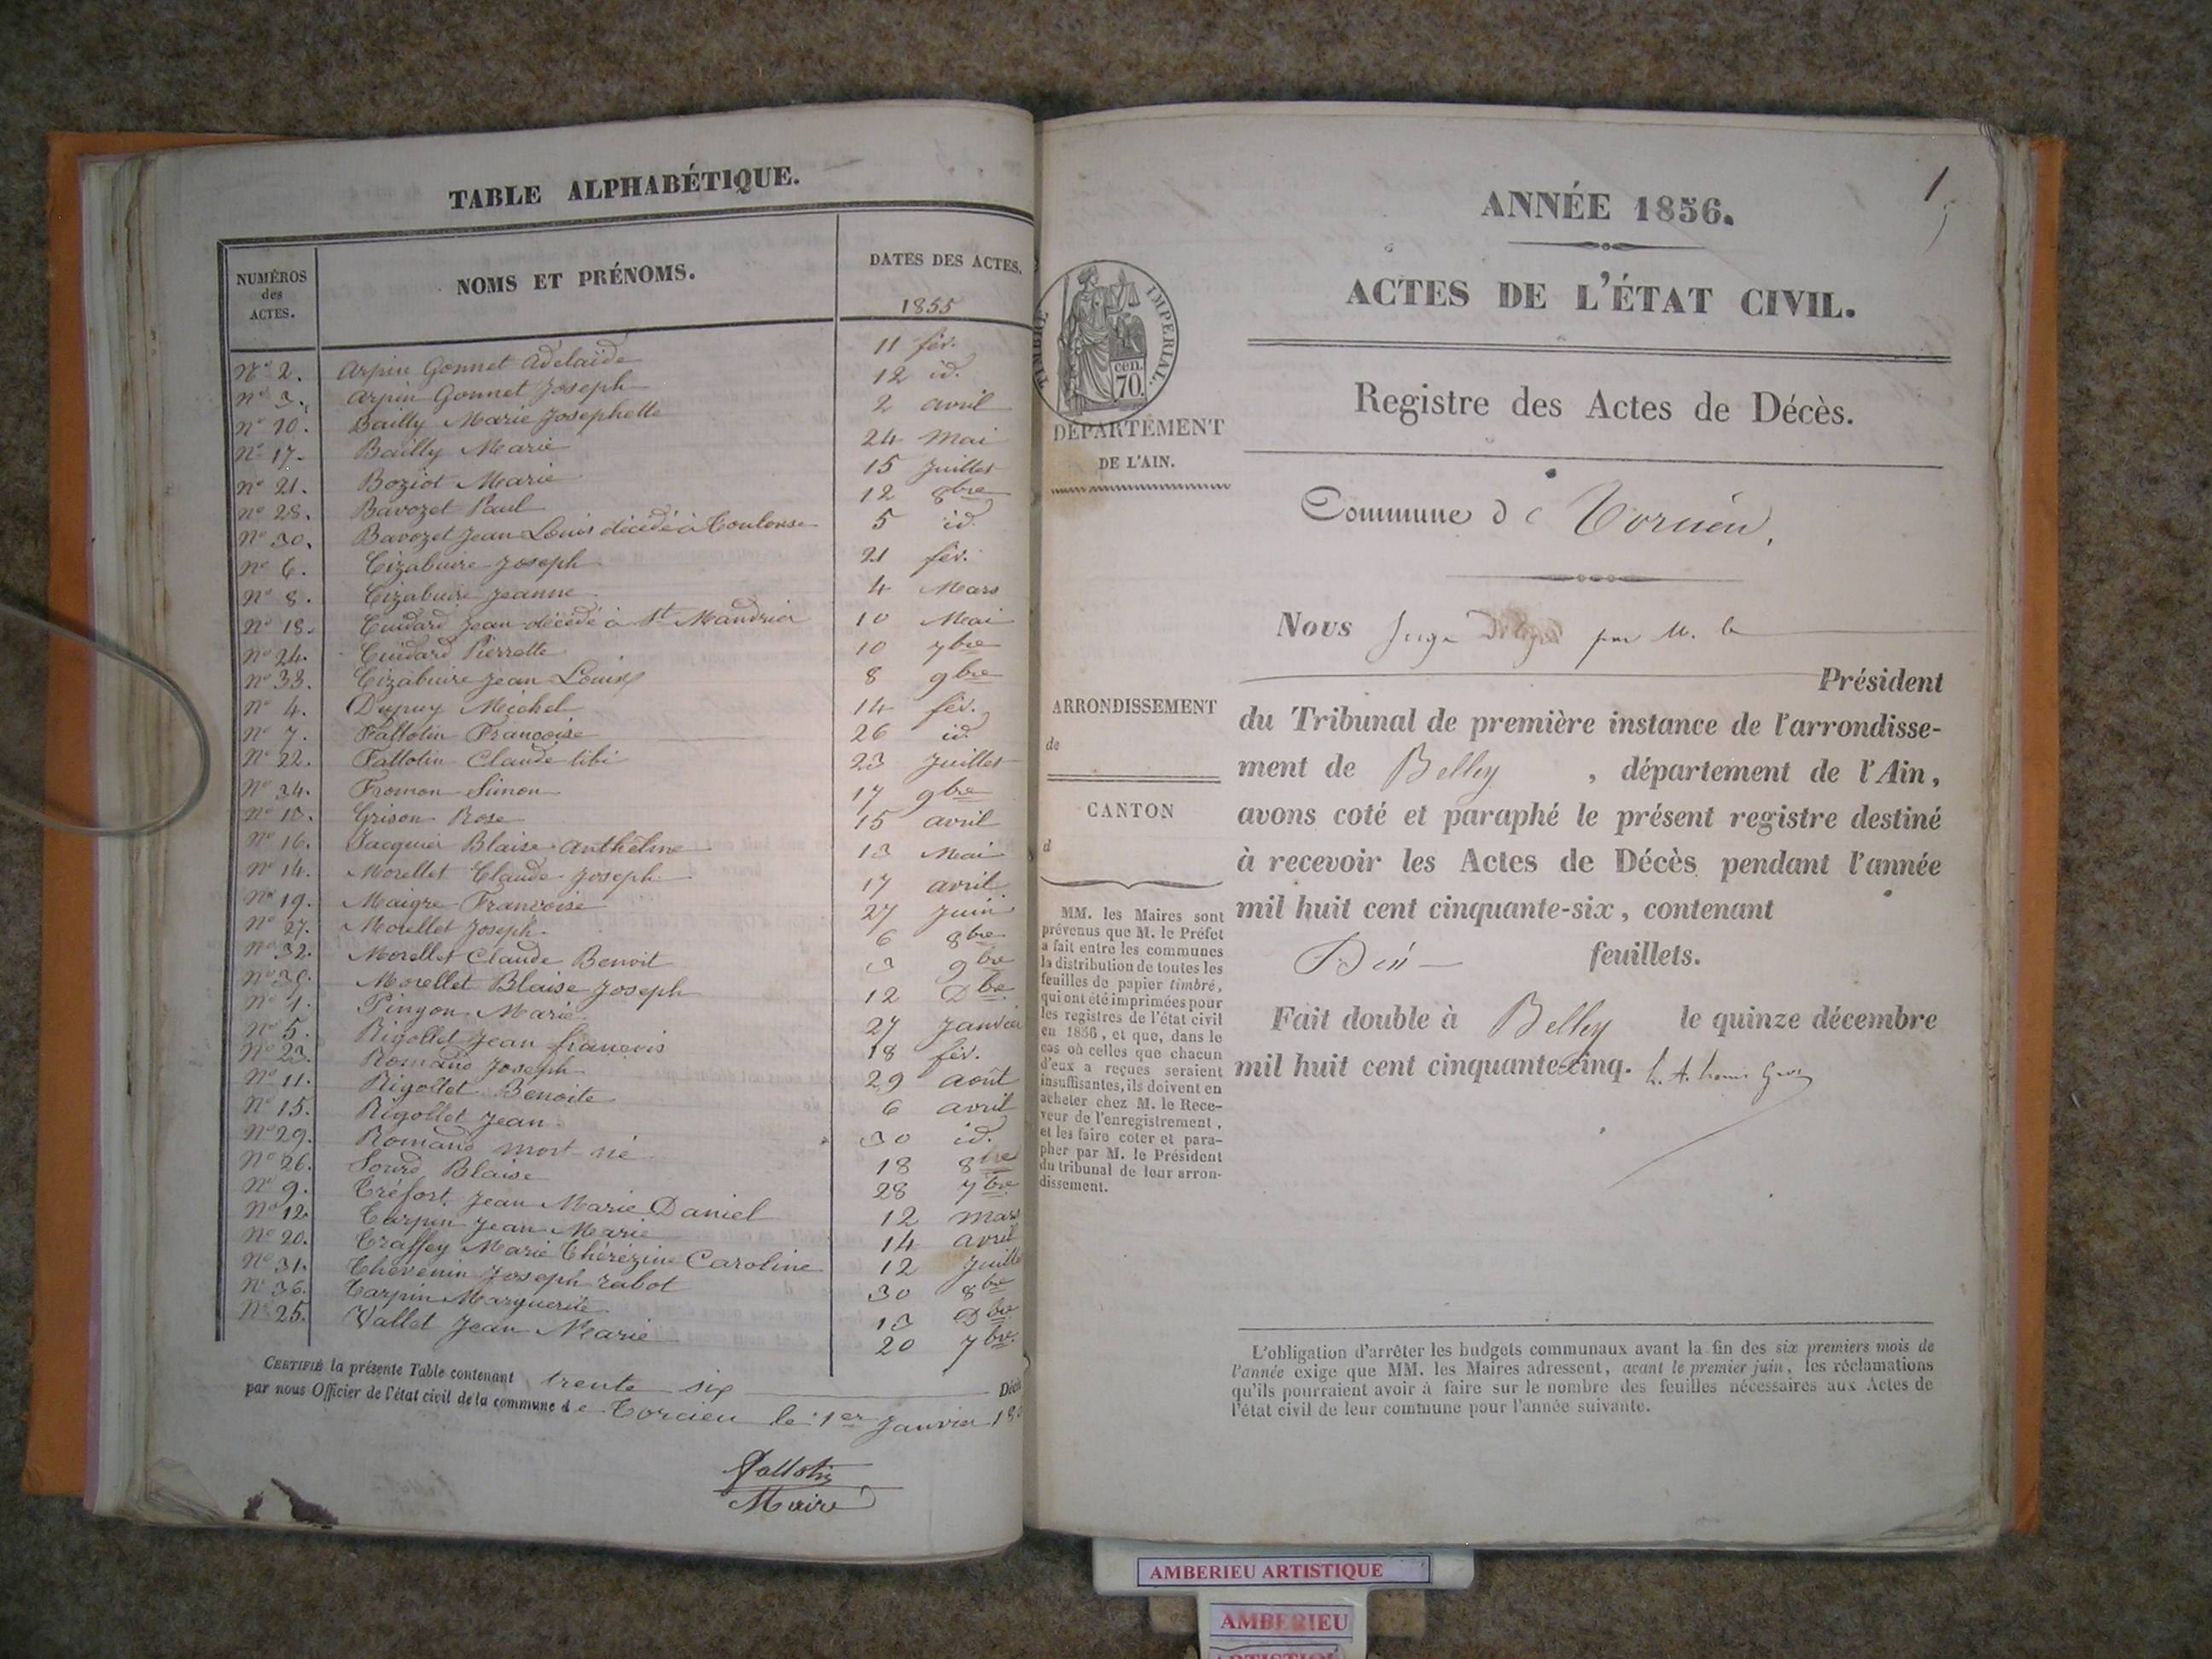 TABLE ALPHABÉTIQUE.
NUMÉROS des ACTES.
NOMS ET PRÉNOMS.
DATES DES ACTES.
1855
N° 2. Arpin Gonnet Adelaïde 11 fév.
n° 3. Arpin Gonnet Joseph 12 id.
n° 10. Bailly Marie Josephette 2 avril
n° 17. Bailly Marie 24 Mai
n° 21. Boziot Marie 15 Juillet
n° 28. Bavozet Paul 12 8bre
n° 30. Bavozet Jean Louis décédé à Toulouse 5 id.
n° 6. Cizabuire Joseph 21 fév.
n° 8. Cizabuire Jeanne 4 Mars
n° 18. Cuidard Jean décédé à St Mandrier 10 Mai
n° 24. Cuidard Pierrette 10 7bre
n° 33. Cizabuire Jean Louis 8 9bre
n° 4. Dupuy Michel 14 fév.
n° 7. Fallotin Françoise 26 id
n° 22. Fallotin Claude 23 Juillet
n° 34. Fromon Simon 17 9bre
n° 13. Grison Rose 15 avril
n° 16. Jacquier Blaise Anthelme 13 Mai
n° 14. Morellet Claude Joseph 17 avril
n° 19. Maigre Françoise 27 Juin
n° 27. Morellet Joseph 6 8bre
n° 32. Morellet Claude Benoit 3 9bre
n° 35. Morellet Blaise Joseph 12 Dbre
n° 1. Pingon Marie 27 Janvier
n° 5. Rigollet Jean françois 18 fév.
n° 23. Romand Joseph 29 août
n° 11. Rigollet Benoite 6 avril
n° 15. Rigollet Jean 30 id.
n° 29. Romand mort né 18 8bre
n° 26. Sourd Blaise 28 7bre
n° 9. Tréfort Jean Marie Daniel 12 mars
n° 12. Carpin Jean Marie 14 avril
n° 20. Traffey Marie Thérézine Caroline 12 Juillet
n° 31. Thévenin Joseph rabot 30 8bre
n° 36. Carpin Marguerite 13 Dbre
n° 25. Vallet Jean Marie 20 7bre
CERTIFIÉ la présente Table contenant trente six Décès
par nous Officier de l'état civil de la commune de Torcieu le 1er Janvier 18
Fallotin
Maire
1
ANNÉE 1856.
ACTES DE L'ÉTAT CIVIL.
TIMBRE IMPERIAL.
cen.
70.
DÉPARTEMENT
DE L'AIN.
Registre des Actes de Décès.
Commune de Torcieu.
Nous Juge Délégué par M. le
Président
ARRONDISSEMENT
de
CANTON
d
du Tribunal de première instance de l'arrondisse-
ment de Belley, département de l'Ain,
avons coté et paraphé le présent registre destiné
à recevoir les Actes de Décès pendant l'année
mil huit cent cinquante-six, contenant
Dix feuillets.
Fait double à Belley le quinze décembre
mil huit cent cinquante-cinq.
MM. les Maires sont
prévenus que M. le Préfet
a fait entre les communes
la distribution de toutes les
feuilles de papier timbré,
qui ont été imprimées pour
les registres de l'état civil
en 1856, et que, dans le
cas où celles que chacun
d'eux a reçues seraient
insuffisantes, ils doivent en
acheter chez M. le Rece-
veur de l'enregistrement,
et les faire coter et para-
pher par M. le Président
du tribunal de leur arron-
dissement.
L'obligation d'arrêter les budgets communaux avant la fin des six premiers mois de
l'année exige que MM. les Maires adressent, avant le premier juin, les réclamations
qu'ils pourraient avoir à faire sur le nombre des feuilles nécessaires aux Actes de
l'état civil de leur commune pour l'année suivante.
AMBERIEU ARTISTIQUE
AMBERIEU
ARTISTIQUE